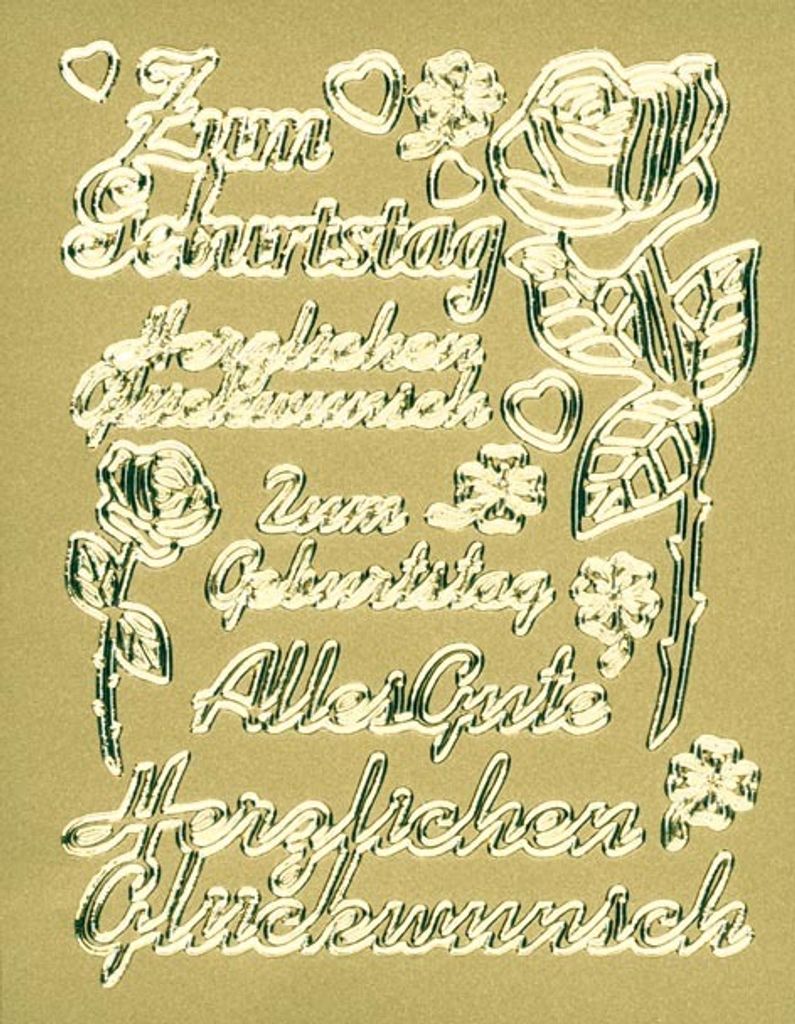 Zum
Geburtstag
Herzlichen
Glückwunsch
Zum
Geburtstag
Alles Gute
Herzlichen
Glückwunsch